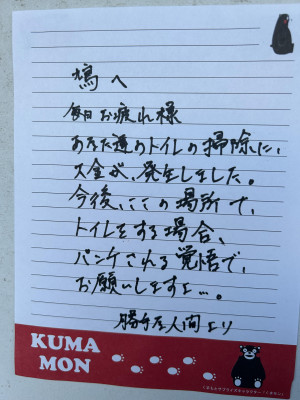 鳩へ
毎日お疲れ様
あなた達のトイレの掃除に、
大金が、発生しました。
今後、ここの場所で、
トイレをする場合、
パンチされる覚悟で、
お願いしますよ…。
勝手な人間より
KUMA
MON